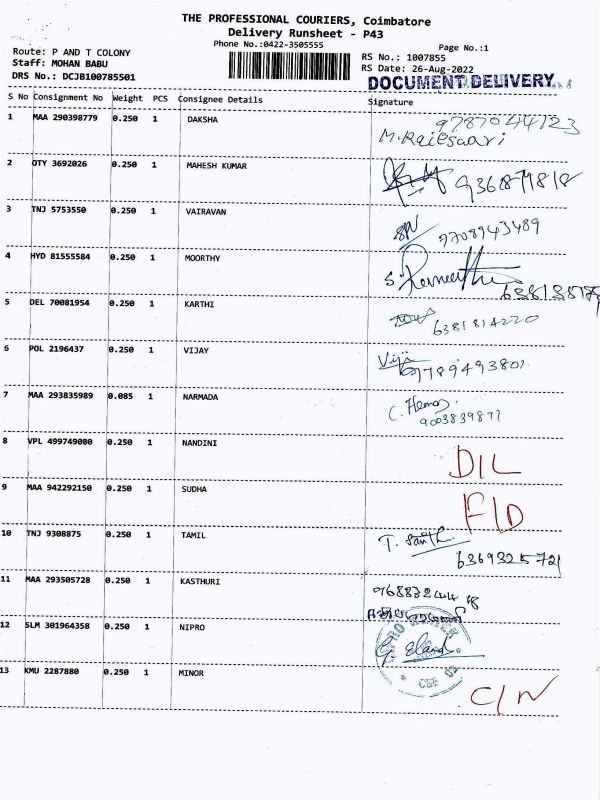 THE PROFESSIONAL COURIERS, Coimbatore
Delivery Runsheet - P43
Phone No.:0422-3505555
Page No.:1
Route: P AND T COLONY
RS No.: 1007855
Staff: MOHAN BABU
RS Date: 26-Aug-2022
DRS No.: DCJB100785501
DOCUMENT DELIVERY
S No Consignment No Weight PCS Consignee Details Signature
1 MAA 290398779 0.250 1 DAKSHA 9787044123
M.Rajeswari
2 OTY 3692026 0.250 1 MAHESH KUMAR
3 TNJ 5753550 0.250 1 VAIRAVAN 9708943489
4 HYD 81555584 0.250 1 MOORTHY
5 DEL 70081954 0.250 1 KARTHI 6381814220
6 POL 2196437 0.250 1 VIJAY Viji
9789493801
7 MAA 293835989 0.085 1 NARMADA C. Hema
9003839877
8 VPL 499749080 0.250 1 NANDINI D/L
9 MAA 942292150 0.250 1 SUDHA F/D
10 TNJ 9308875 0.250 1 TAMIL
6369325721
11 MAA 293505728 0.250 1 KASTHURI
12 SLM 301964358 0.250 1 NIPRO
13 KMU 2287880 0.250 1 MINOR C/N